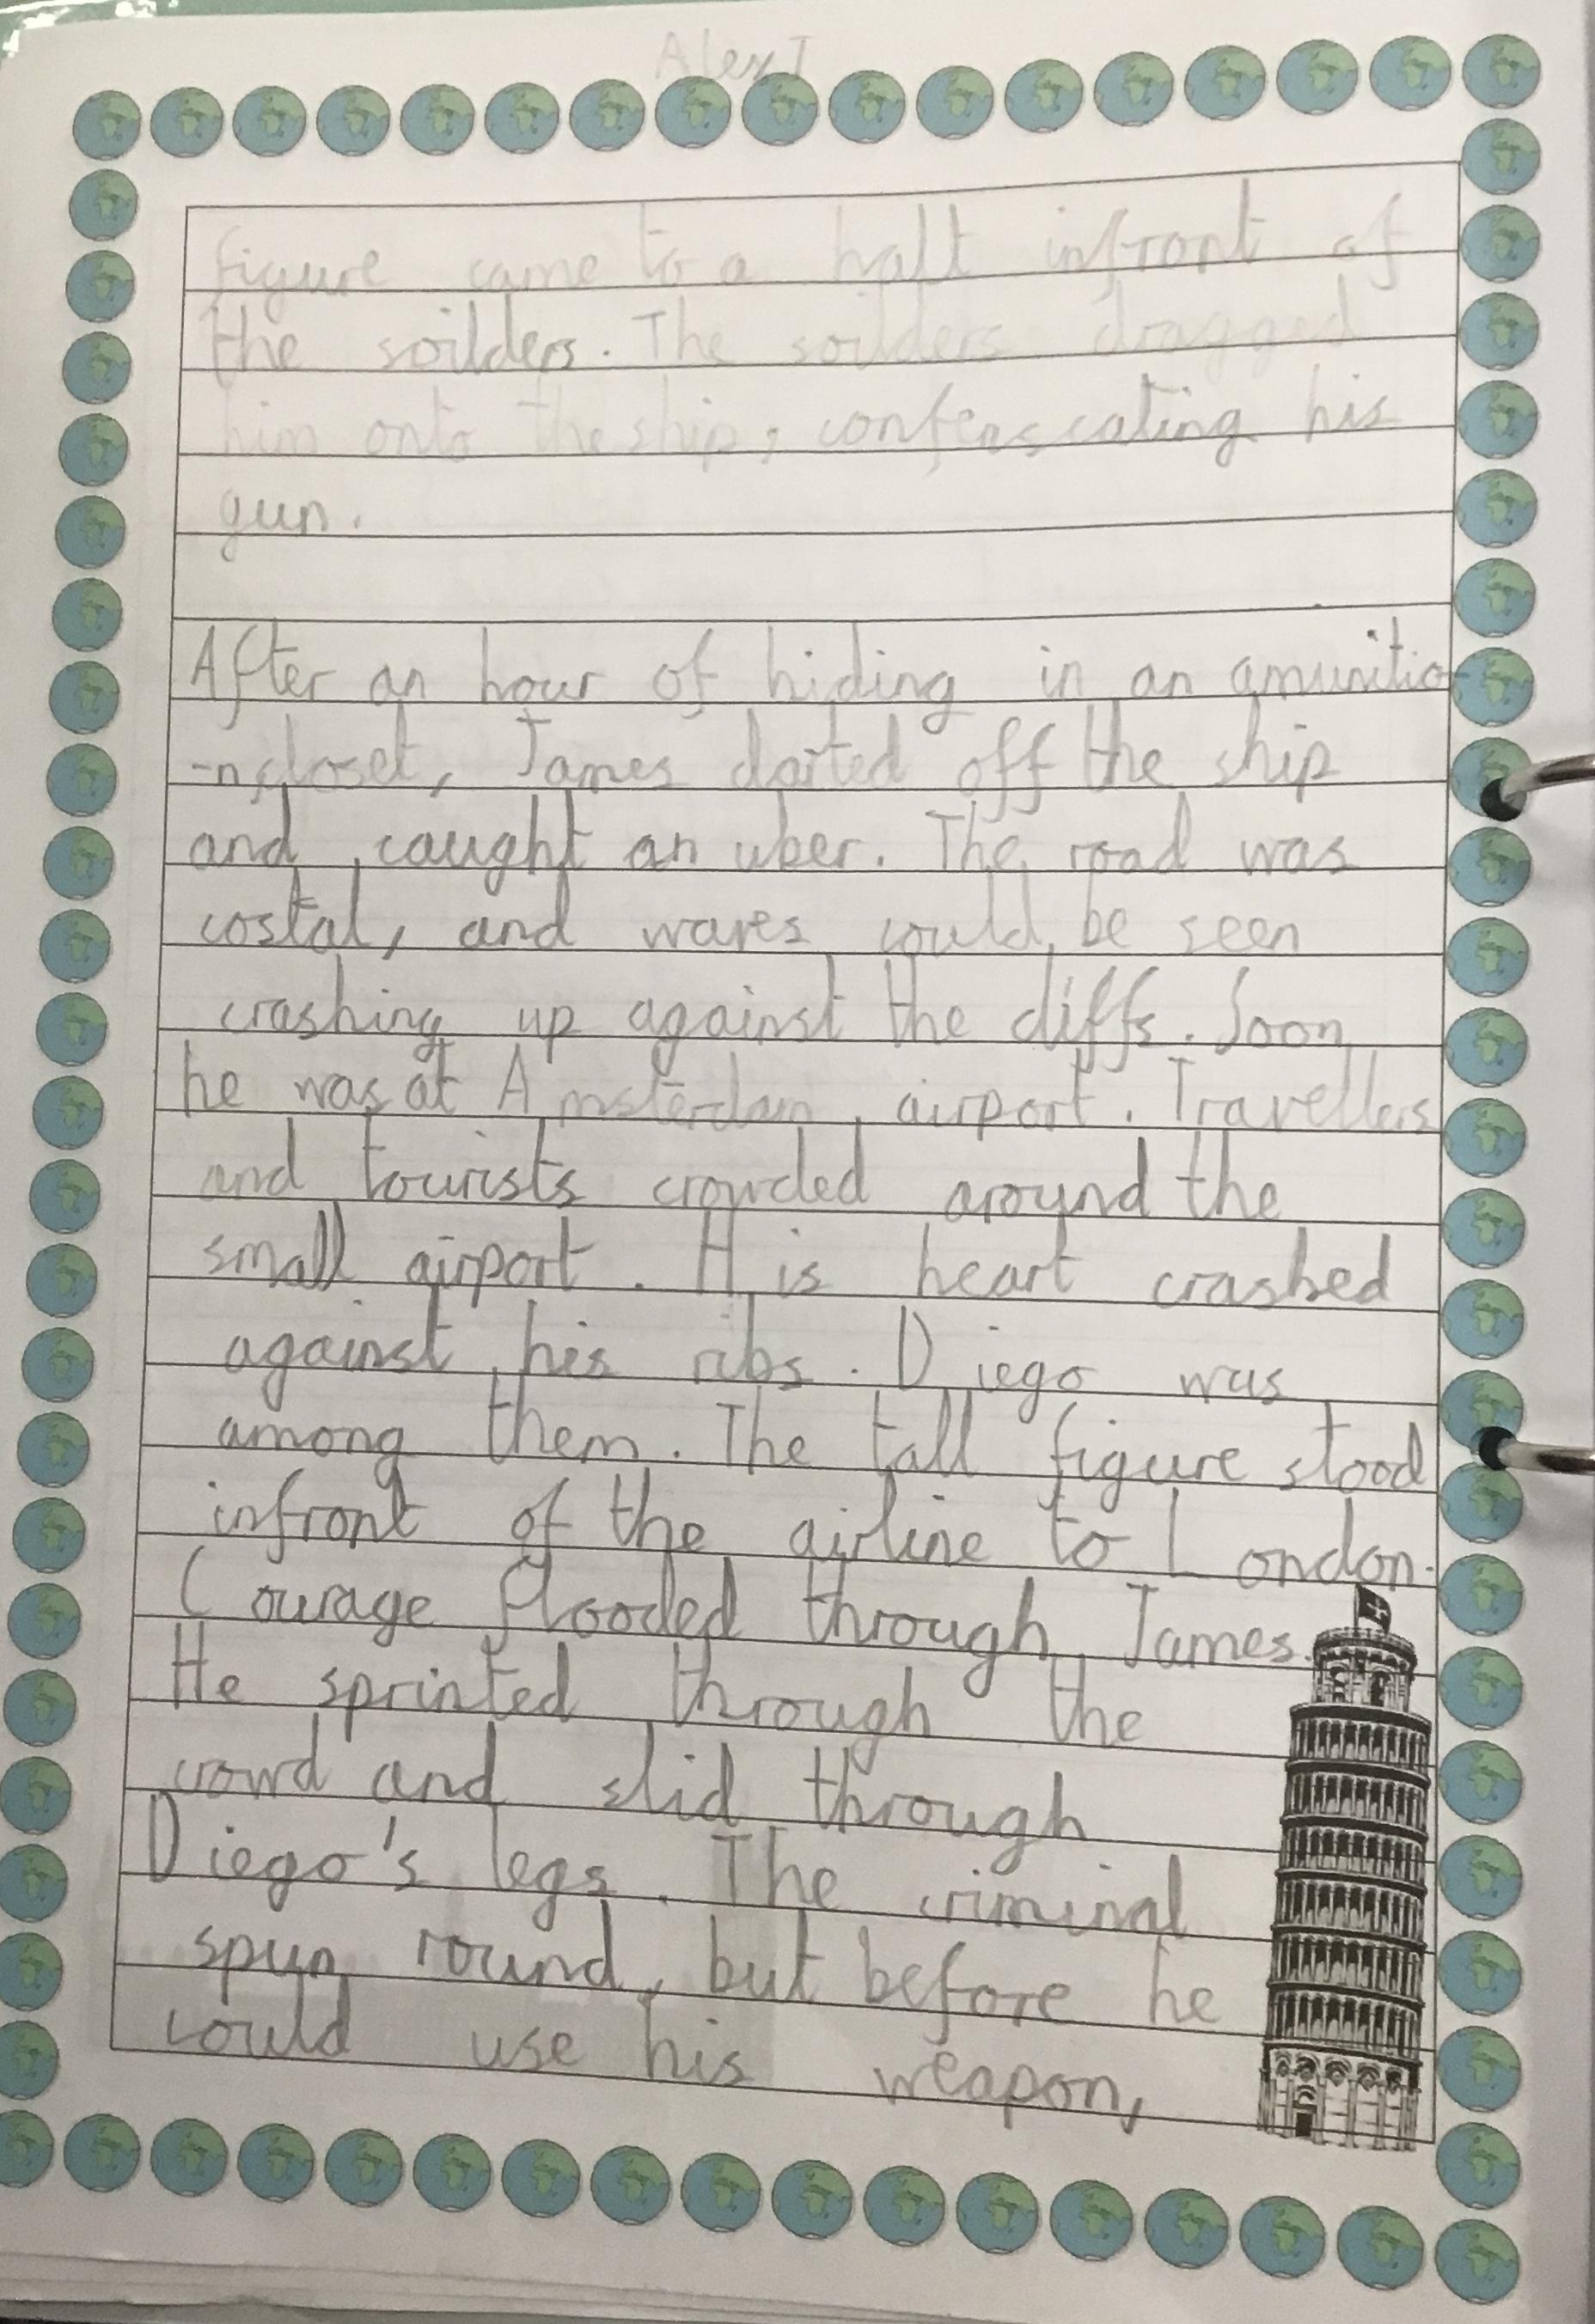 Alex T
figure came to a halt infront of
the soilders. The soilders dragged
him onto the ship, confenscating his
gun.
After an hour of hiding in an amunitio
-n closet, James darted off the ship
and caught an uber. The road was
costal, and waves could be seen
crashing up against the cliffs. Soon
he was at Amsterdam airport. Travellers
and tourists crowded around the
small airport. His heart crashed
against his ribs. Diego was
among them. The tall figure stood
infront of the airline to London.
Courage flooded through James.
He sprinted through the
crowd and slid through
Diego's legs. The criminal
spun round, but before he
could use his weapon,